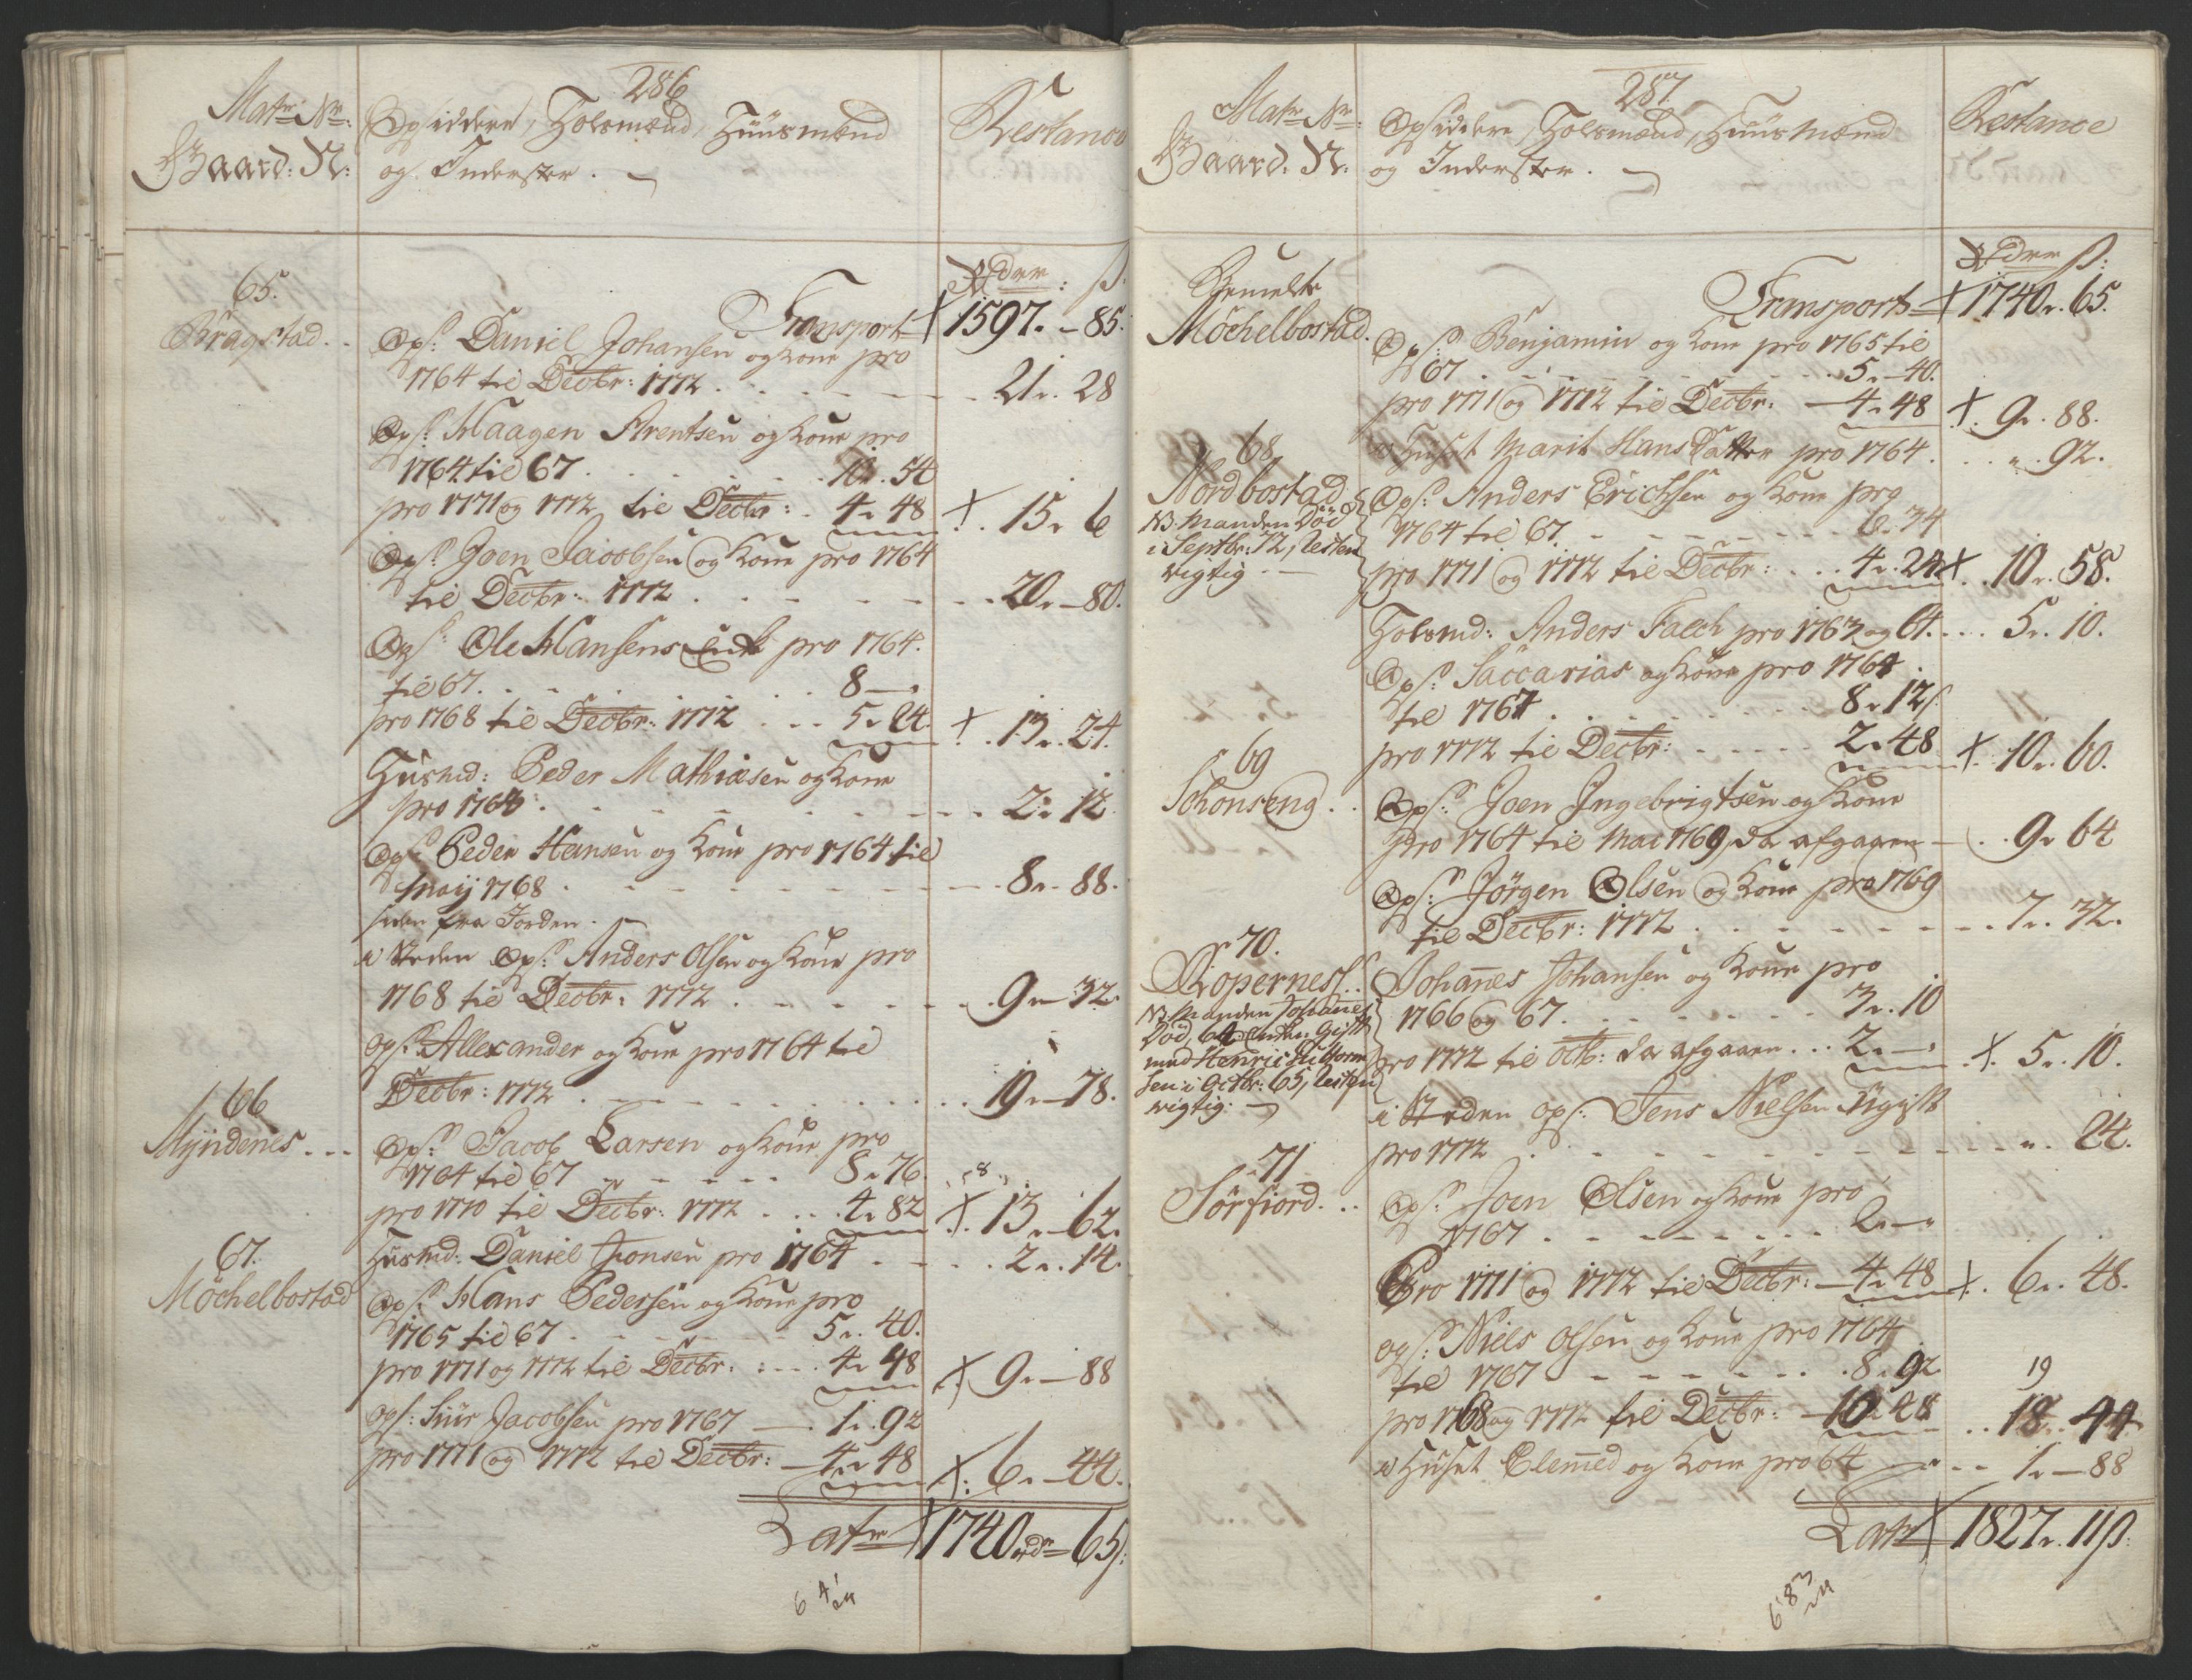 286
Matr: Nr:
Gaard: N:
Opsiddere, Tolsmænd, Huusmænd
og Inderster.
Restance
Rdr : s.
Transport 1597. - 85.
65.
Kragstad.
Ops: Daniel Johansen og kone pro
1764 til Decbr: 1772 . . . 21 . 28
Ops: Haagen Arentsen og kone pro
1764 til 67 . . . 10 . 54
pro 1771 og 1772 til Decbr: . 4 . 48 15 . 6
Ops: Joen Jacobsen og kone pro 1764
til Decbr: 1772 . . . 20 - 80.
Ops: Ole Hansens Enke pro 1764.
til 67 . . . 8 -
pro 1768 til Decbr: 1772 . . . 5 . 24. 13 . 24.
Husmd: Peder Mathiesen og kone
pro 1763 . . . 2 . 12
Ops: Peder Hansen og kone pro 1764 til
Maij 1768 . . . 8 . 88.
siden fra Jorden.
i steden Ops: Anders Olsen og kone pro
1768 til Decbr: 1772 . . . 9 - 32.
Ops: Allexander og kone pro 1764 til
Decbr: 1772 . . . 19 - 78.
66
Myndenes . . .
Ops: Jacob Larsen og kone pro
1764 til 67 . . . 8 . 76. 8
pro 1770 til Decbr: 1772 . . . 4 . 82 13 - 62.
Husmd: Daniel Joonsen pro 1764 . . . 2 . 14.
67.
Möchelbostad
Ops: Hans Pedersen og kone pro
1765 til 67 . . . 5 . 40.
pro 1771 og 1772 til Decbr: . . . 4 . 48 9 - 88
Ops: Siur Jacobsen pro 1767 — 1 . 92
pro 1771 og 1772 til Decbr: — 4 . 48 6 - 44.
Latr 1740 rdr - 65 s:
287.
Matr: Nr:
Gaard: N:
Opsiddere, Tolsmænd, Huusmænd
og Inderster.
Restance
Rdr s:
Transport 1740 . 65.
Bemelte
Möchelbostad.
Ops: Benjamin og kone pro 1765 til
67 . . . 5 - 40.
pro 1771 og 1772 til Decbr: — 4 . 48 9 . 88.
i Huset Marit Hans Datter pro 1764 . . . " . 92.
68
Nordbostad
NB. Manden Död
i Septbr: 72, Resten
rigtig. —
Ops: Anders Erichsen og kone pro
1764 til 67 . . . 6 . 34
pro 1771 og 1772 til Decbr: . . . 4 . 24 10 . 58.
Tolsmd: Anders Falch pro 1763 og 64. . . . 5 . 10.
Ops: Saccarias og kone pro 1764
til 1767 . . . 8 . 12 s.
pro 1772 til Decbr: . . . 2 . 48 10 . 60.
69
Schonseng . .
Ops: Joen Ingebrigtsen og kone
pro 1764 til Mai 1769, da afgaaen — . . 9 . 64
Ops: Jörgen Olsen og kone pro 1769
til Decbr: 1772 . . . 7 . 32.
70.
NB. Manden Johannes
Död, 64, Enken Gift
med Henric
sen i Octbr: 65, Resten
rigtig: —
Johannes Johansen og kone pro
1766 og 67 . . . 3 . 10
pro 1772 til Octb: da afgaaen . . . 2 . — 5 . 10.
i Steden Ops: Jens Nielsen Ugift
pro 1772 . . . " . 24.
71
Sörfiord . . .
Ops: Joen Olsen og kone pro
1767 . . . 2 . —
Pro 1771 og 1772 til Decbr: — 4 . 48 6 . 48.
Ops: Niels Olsen og kone pro 1764
til 1767 . . . 8 . 92 19
pro 1768 og 1772 til Decbr: — 10 . 48 . . 18 . 44
i Huset Clemed og kone pro 64 . . . 1 - 88
Latr 1827 . 11 s:
683